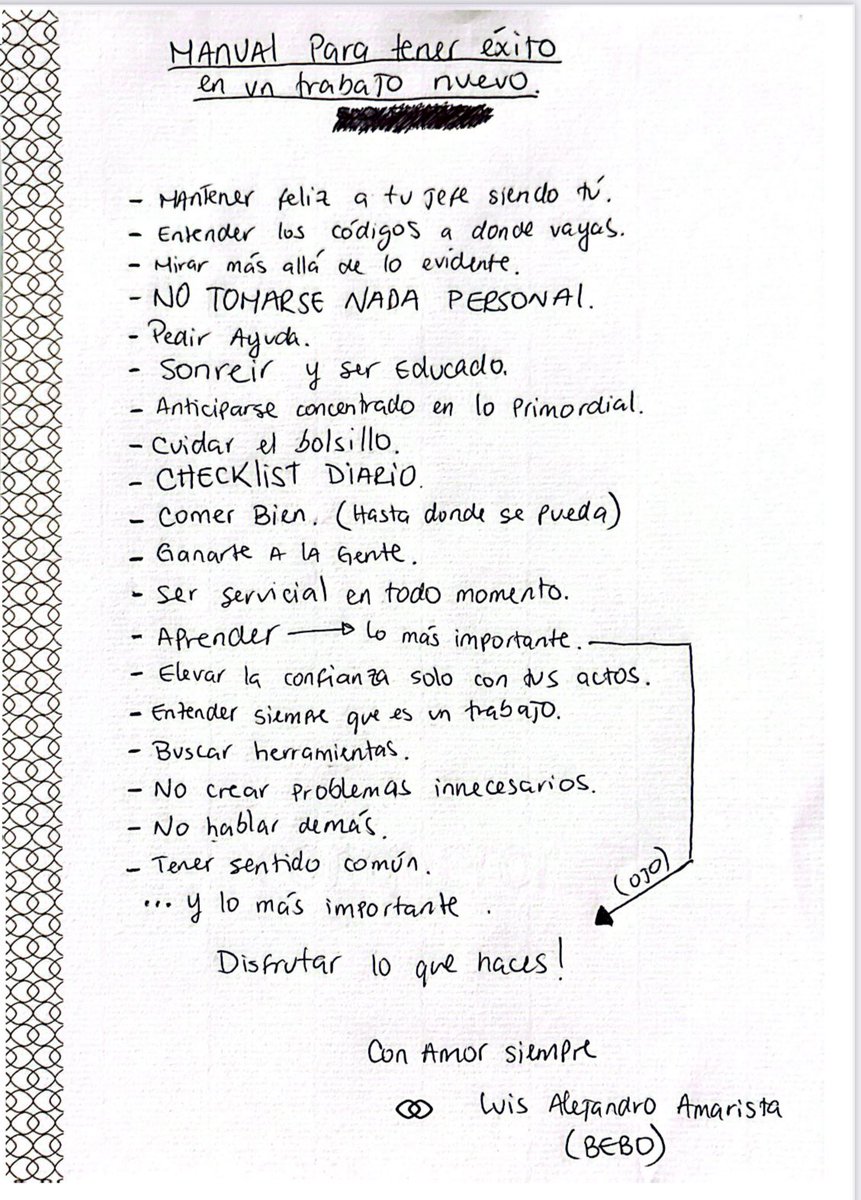 MANUAL Para tener éxito
en un trabajo nuevo.
- MANtener feliz a tu jefe siendo tú.
- Entender los códigos a donde vayas.
- Mirar más allá de lo evidente.
- NO TOMARSE NADA PERSONAL.
- Pedir Ayuda.
- Sonreir y ser Educado.
- Anticiparse concentrado en lo Primordial.
- Cuidar el bolsillo.
- CHECKlist DIARIO.
- Comer Bien. (Hasta donde se pueda)
- Ganarte A LA Gente.
- Ser servicial en todo momento.
- Aprender → lo más importante.
- Elevar la confianza solo con tus actos.
- Entender siempre que es un trabajo.
- Buscar herramientas.
- No crear problemas innecesarios.
- No hablar demás.
- Tener sentido común.
(OJO)
... y lo más importante.
Disfrutar lo que haces!
Con Amor siempre
Luis Alejandro Amarista
(BEBO)